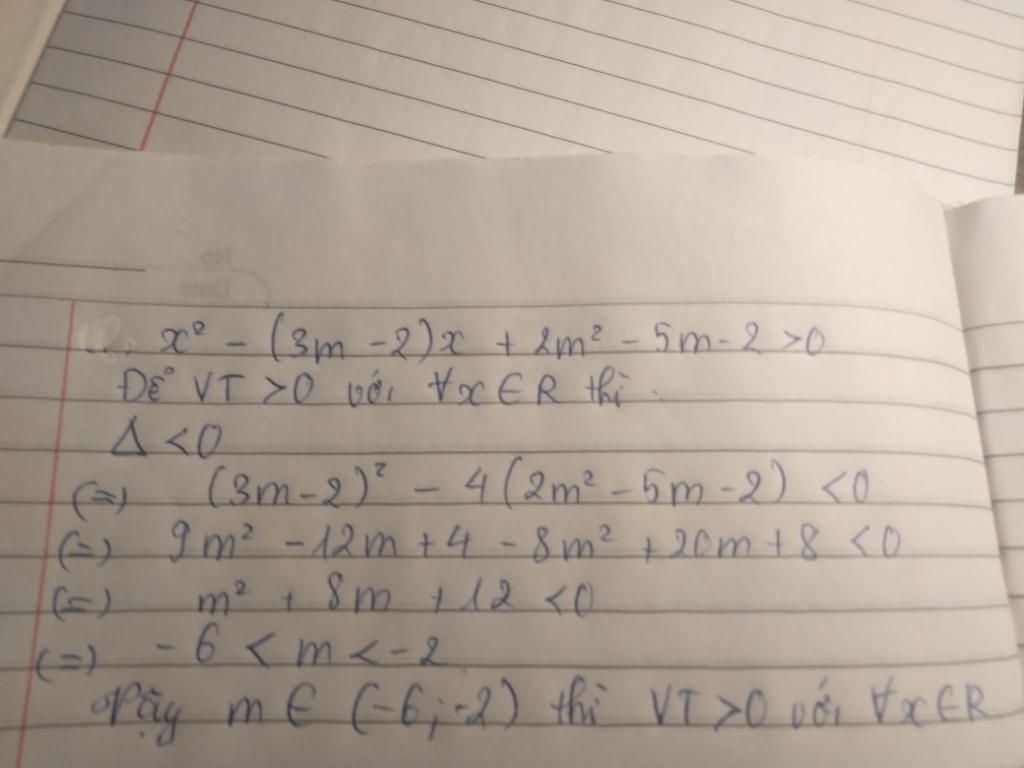 No
Date
x² - (3m - 2)x + 2m² - 5m - 2 > 0
Để VT > 0 với ∀x ∈ R thì
Δ < 0
(=) (3m - 2)² - 4(2m² - 5m - 2) < 0
(=) 9m² - 12m + 4 - 8m² + 20m + 8 < 0
(=) m² + 8m + 12 < 0
(=) -6 < m < -2
Vậy m ∈ (-6; -2) thì VT > 0 với ∀x ∈ R